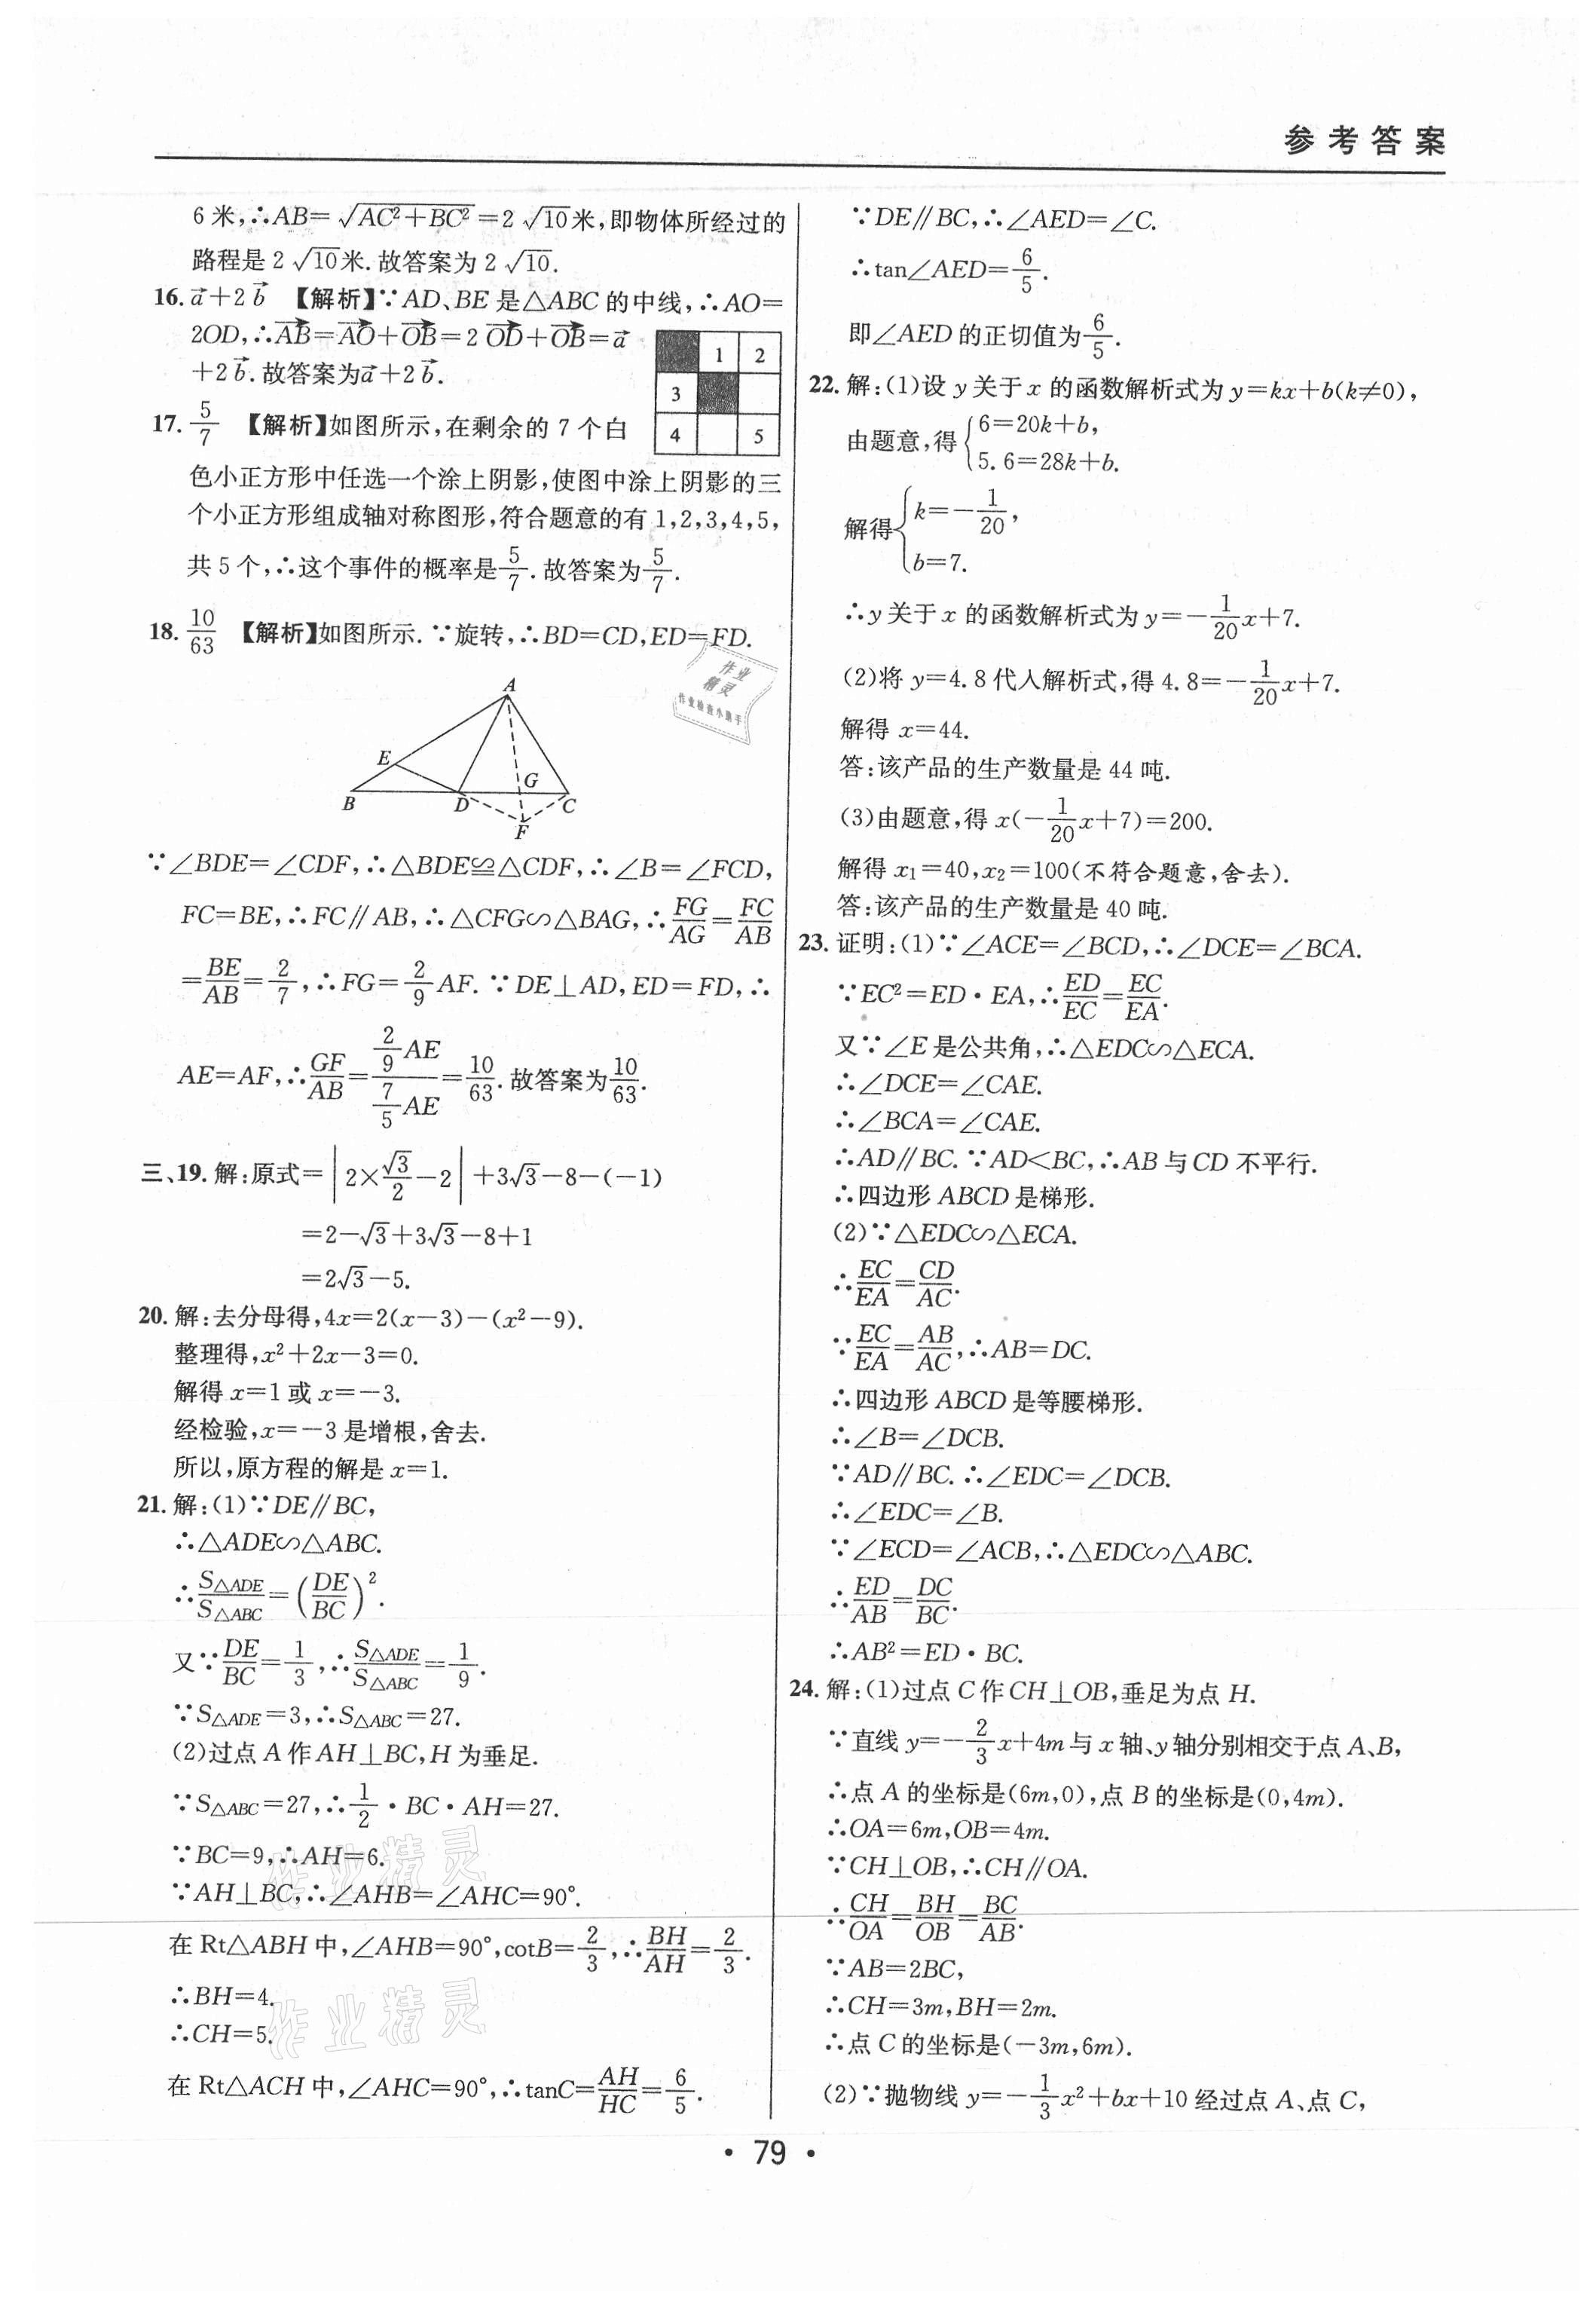 参考答案
6米,∴AB=√(AC²+BC²)=2√10米,即物体所经过的
路程是2√10米.故答案为2√10.
16. a⃗+2b⃗ 【解析】∵AD、BE是△ABC的中线,∴AO=
2OD,∴AB⃗=AO⃗+OB⃗=2OD⃗+OB⃗=a⃗
+2b⃗.故答案为a⃗+2b⃗.
1 2
3
4 5
17. 5/7 【解析】如图所示,在剩余的7个白
色小正方形中任选一个涂上阴影,使图中涂上阴影的三
个小正方形组成轴对称图形,符合题意的有1,2,3,4,5,
共5个,∴这个事件的概率是5/7.故答案为5/7.
18. 10/63 【解析】如图所示.∵旋转,∴BD=CD,ED=FD.
作业
精灵
作业检查小助手
A
E
G
B D C
F
∵∠BDE=∠CDF,∴△BDE≌△CDF,∴∠B=∠FCD,
FC=BE,∴FC∥AB,∴△CFG∽△BAG,∴FG/AG=FC/AB
=BE/AB=2/7,∴FG=2/9AF.∵DE⊥AD,ED=FD,∴
AE=AF,∴GF/AB=(2/9AE)/(7/5AE)=10/63.故答案为10/63.
三、19. 解:原式=|2×√3/2-2|+3√3-8-(-1)
=2-√3+3√3-8+1
=2√3-5.
20. 解:去分母得,4x=2(x-3)-(x²-9).
整理得,x²+2x-3=0.
解得x=1或x=-3.
经检验,x=-3是增根,舍去.
所以,原方程的解是x=1.
21. 解:(1)∵DE∥BC,
∴△ADE∽△ABC.
∴S△ADE/S△ABC=(DE/BC)².
又∵DE/BC=1/3,∴S△ADE/S△ABC=1/9.
∵S△ADE=3,∴S△ABC=27.
(2)过点A作AH⊥BC,H为垂足.
∵S△ABC=27,∴1/2·BC·AH=27.
∵BC=9,∴AH=6.
∵AH⊥BC,∴∠AHB=∠AHC=90°.
在Rt△ABH中,∠AHB=90°,cotB=2/3,∴BH/AH=2/3.
∴BH=4.
∴CH=5.
在Rt△ACH中,∠AHC=90°,∴tanC=AH/HC=6/5.
作业精灵
作业精灵
∵DE∥BC,∴∠AED=∠C.
∴tan∠AED=6/5.
即∠AED的正切值为6/5.
22. 解:(1)设y关于x的函数解析式为y=kx+b(k≠0),
由题意,得{6=20k+b,
5.6=28k+b.
解得{k=-1/20,
b=7.
∴y关于x的函数解析式为y=-1/20x+7.
(2)将y=4.8代入解析式,得4.8=-1/20x+7.
解得x=44.
答:该产品的生产数量是44吨.
(3)由题意,得x(-1/20x+7)=200.
解得x₁=40,x₂=100(不符合题意,舍去).
答:该产品的生产数量是40吨.
23. 证明:(1)∵∠ACE=∠BCD,∴∠DCE=∠BCA.
∵EC²=ED·EA,∴ED/EC=EC/EA.
又∵∠E是公共角,∴△EDC∽△ECA.
∴∠DCE=∠CAE.
∴∠BCA=∠CAE.
∴AD∥BC.∵AD<BC,∴AB与CD不平行.
∴四边形ABCD是梯形.
(2)∵△EDC∽△ECA.
∴EC/EA=CD/AC.
∵EC/EA=AB/AC,∴AB=DC.
∴四边形ABCD是等腰梯形.
∴∠B=∠DCB.
∵AD∥BC.∴∠EDC=∠DCB.
∴∠EDC=∠B.
∵∠ECD=∠ACB,∴△EDC∽△ABC.
∴ED/AB=DC/BC.
∴AB²=ED·BC.
24. 解:(1)过点C作CH⊥OB,垂足为点H.
∵直线y=-2/3x+4m与x轴、y轴分别相交于点A、B,
∴点A的坐标是(6m,0),点B的坐标是(0,4m).
∴OA=6m,OB=4m.
∵CH⊥OB,∴CH∥OA.
∴CH/OA=BH/OB=BC/AB.
∵AB=2BC,
∴CH=3m,BH=2m.
∴点C的坐标是(-3m,6m).
(2)∵抛物线y=-1/3x²+bx+10经过点A、点C,
·79·